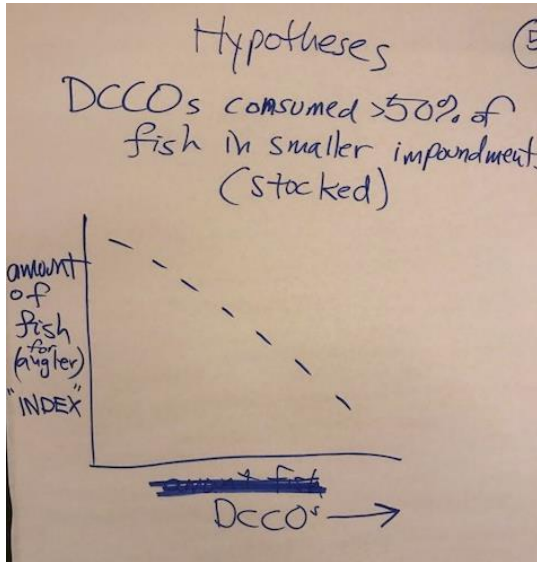 Hypotheses
5
DCCOs consumed >50% of
fish in smaller impoundments
(stocked)
amount
of
fish
for
(angler)
"INDEX"
amount fish
DCCOs →